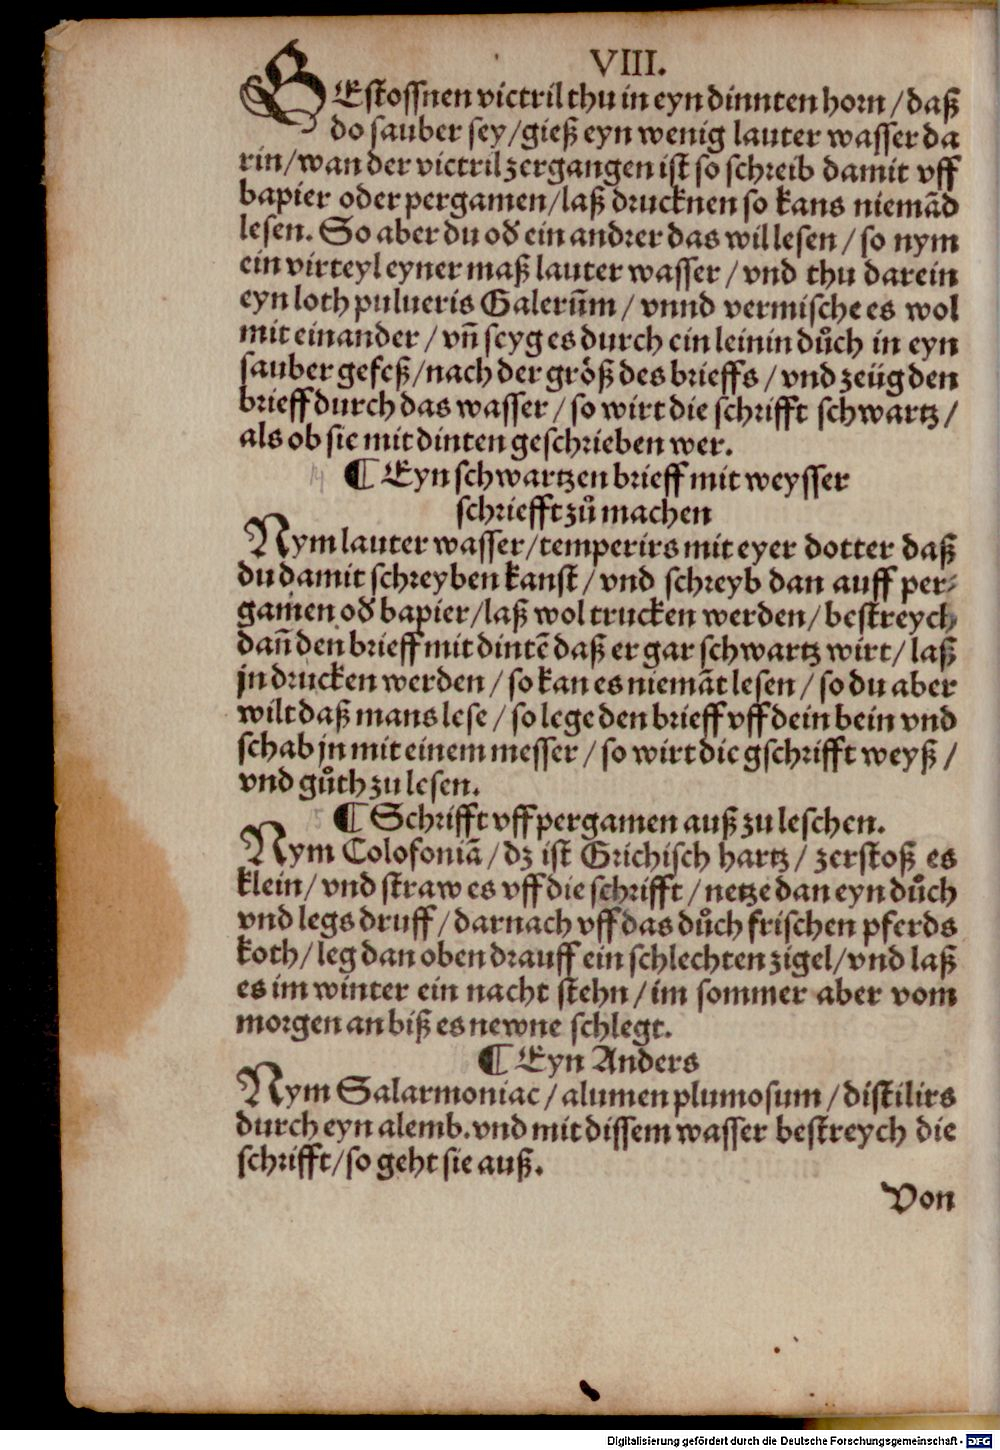 VIII.
GEstossnen victril thu in eyn dinnten horn / daß
do sauber sey / gieß eyn wenig lauter wasser da
rin / wan der victril zergangen ist so schreib damit vff
bapier oder pergamen / laß drucknen so kans niemād
lesen. So aber du oď ein andrer das wil lesen / so nym
ein virteyl eyner maß lauter wasser / vnd thu darein
eyn loth pulueris Galerūm / vnnd vermische es wol
mit einander / vñ seyg es durch ein leinin důch in eyn
sauber gefeß / nach der größ des brieffs / vnd zeüg den
brieff durch das wasser / so wirt die schrifft schwartz /
als ob sie mit dinten geschrieben wer.
¶ Eyn schwartzen brieff mit weysser
schriefft zů machen
Nym lauter wasser / temperirs mit eyer dotter daß
du damit schreyben kanst / vnd schreyb dan auff per⸗
gamen oď bapier / laß wol trucken werden / bestreych
dañ den brieff mit dintē daß er gar schwartz wirt / laß
jn drucken werden / so kan es niemāt lesen / so du aber
wilt daß mans lese / so lege den brieff vff dein bein vnd
schab jn mit einem messer / so wirt die gschrifft weyß /
vnd gůth zu lesen.
¶ Schrifft vff pergamen auß zu leschen.
Nym Colofoniā / dz ist Grichisch hartz / zerstoß es
klein / vnd straw es vff die schrifft / netze dan eyn důch
vnd legs druff / darnach vff das důch frischen pferds
koth / leg dan oben drauff ein schlechten zigel / vnd laß
es im winter ein nacht stehn / im sommer aber vom
morgen an biß es newne schlegt.
¶ Eyn Anders
Nym Salarmoniac / alumen plumosum / distilirs
durch eyn alemb. vnd mit dissem wasser bestreych die
schrifft / so geht sie auß.
Von
Digitalisierung gefördert durch die Deutsche Forschungsgemeinschaft - DFG